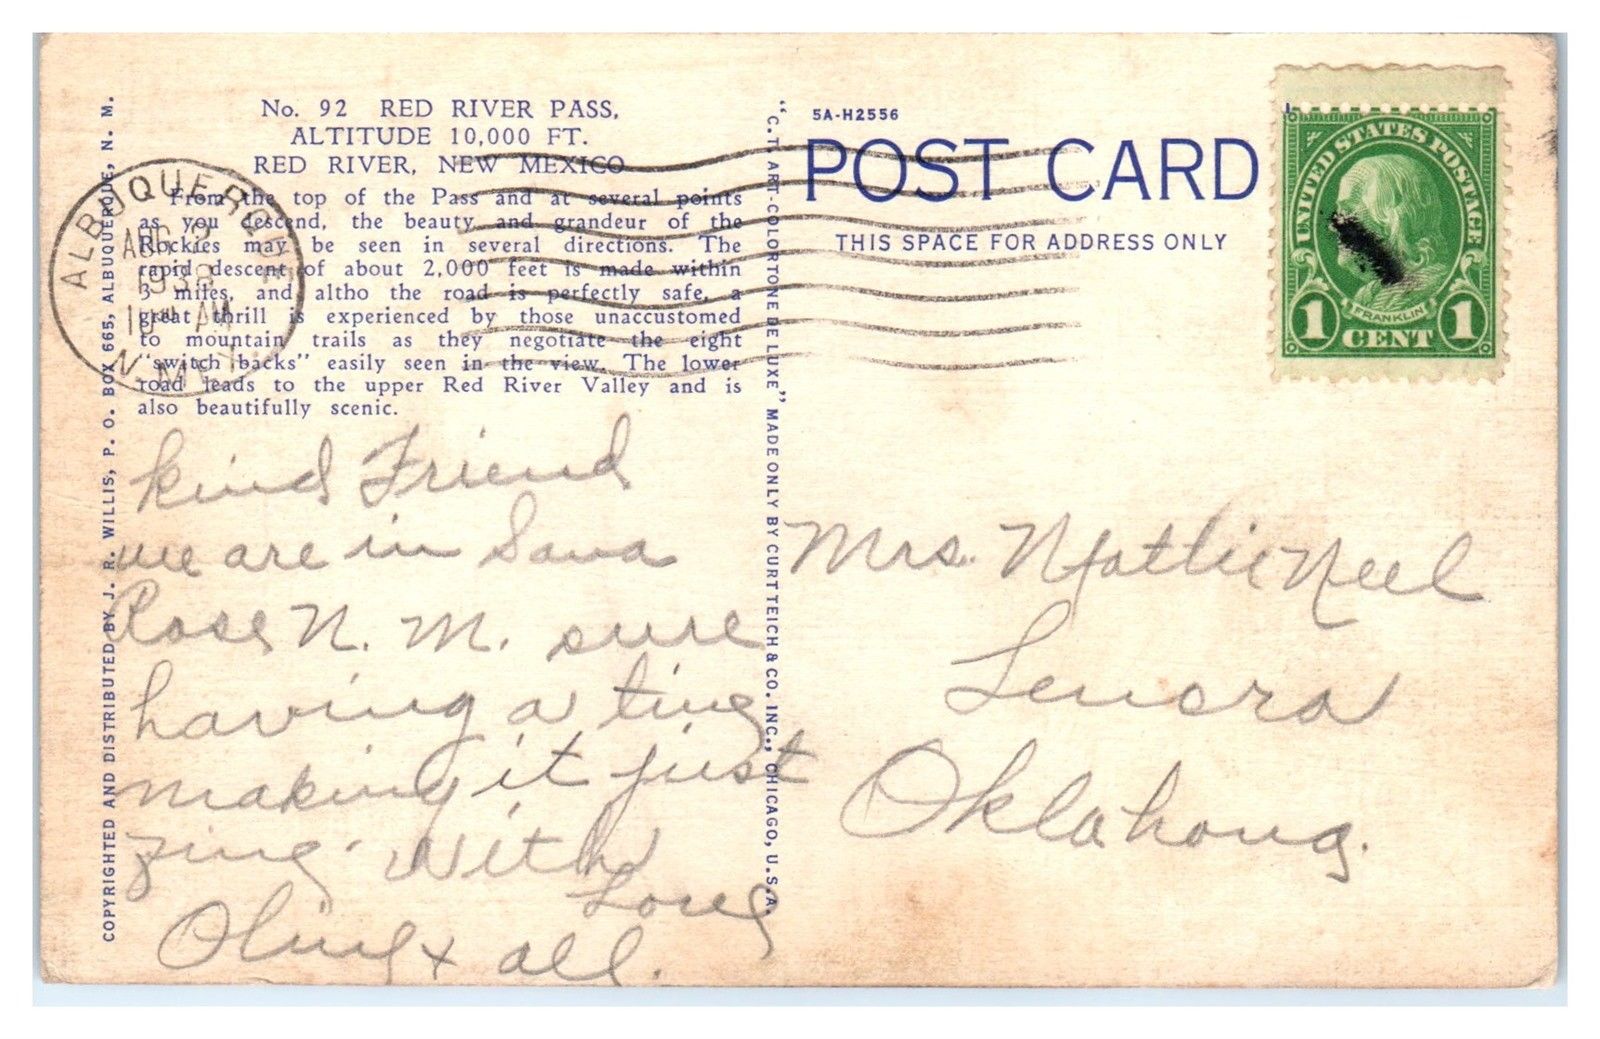 No. 92 RED RIVER PASS,
ALTITUDE 10,000 FT.
RED RIVER, NEW MEXICO
From the top of the Pass and at several points
as you descend, the beauty and grandeur of the
Rockies may be seen in several directions. The
rapid descent of about 2,000 feet is made within
3 miles, and altho the road is perfectly safe, a
great thrill is experienced by those unaccustomed
to mountain trails as they negotiate the eight
"switch backs" easily seen in the view. The lower
road leads to the upper Red River Valley and is
also beautifully scenic.
ALBUQUERQUE
AUG
193
10 AM
N. MEX.
COPYRIGHTED AND DISTRIBUTED BY J. R. WILLIS, P. O. BOX 665, ALBUQUERQUE, N. M.
Kind Friend
we are in Sana
Rose N. M. sure
having a time
making it just
zing. With
Love
Oline + all.
"C. T. ART-COLORTONE DE LUXE" MADE ONLY BY CURT TEICH & CO. INC., CHICAGO, U.S.A.
5A-H2556
POST CARD
THIS SPACE FOR ADDRESS ONLY
UNITED STATES POSTAGE
FRANKLIN
1 CENT 1
Mrs. Mattie Neel
Lenora
Oklahoma.